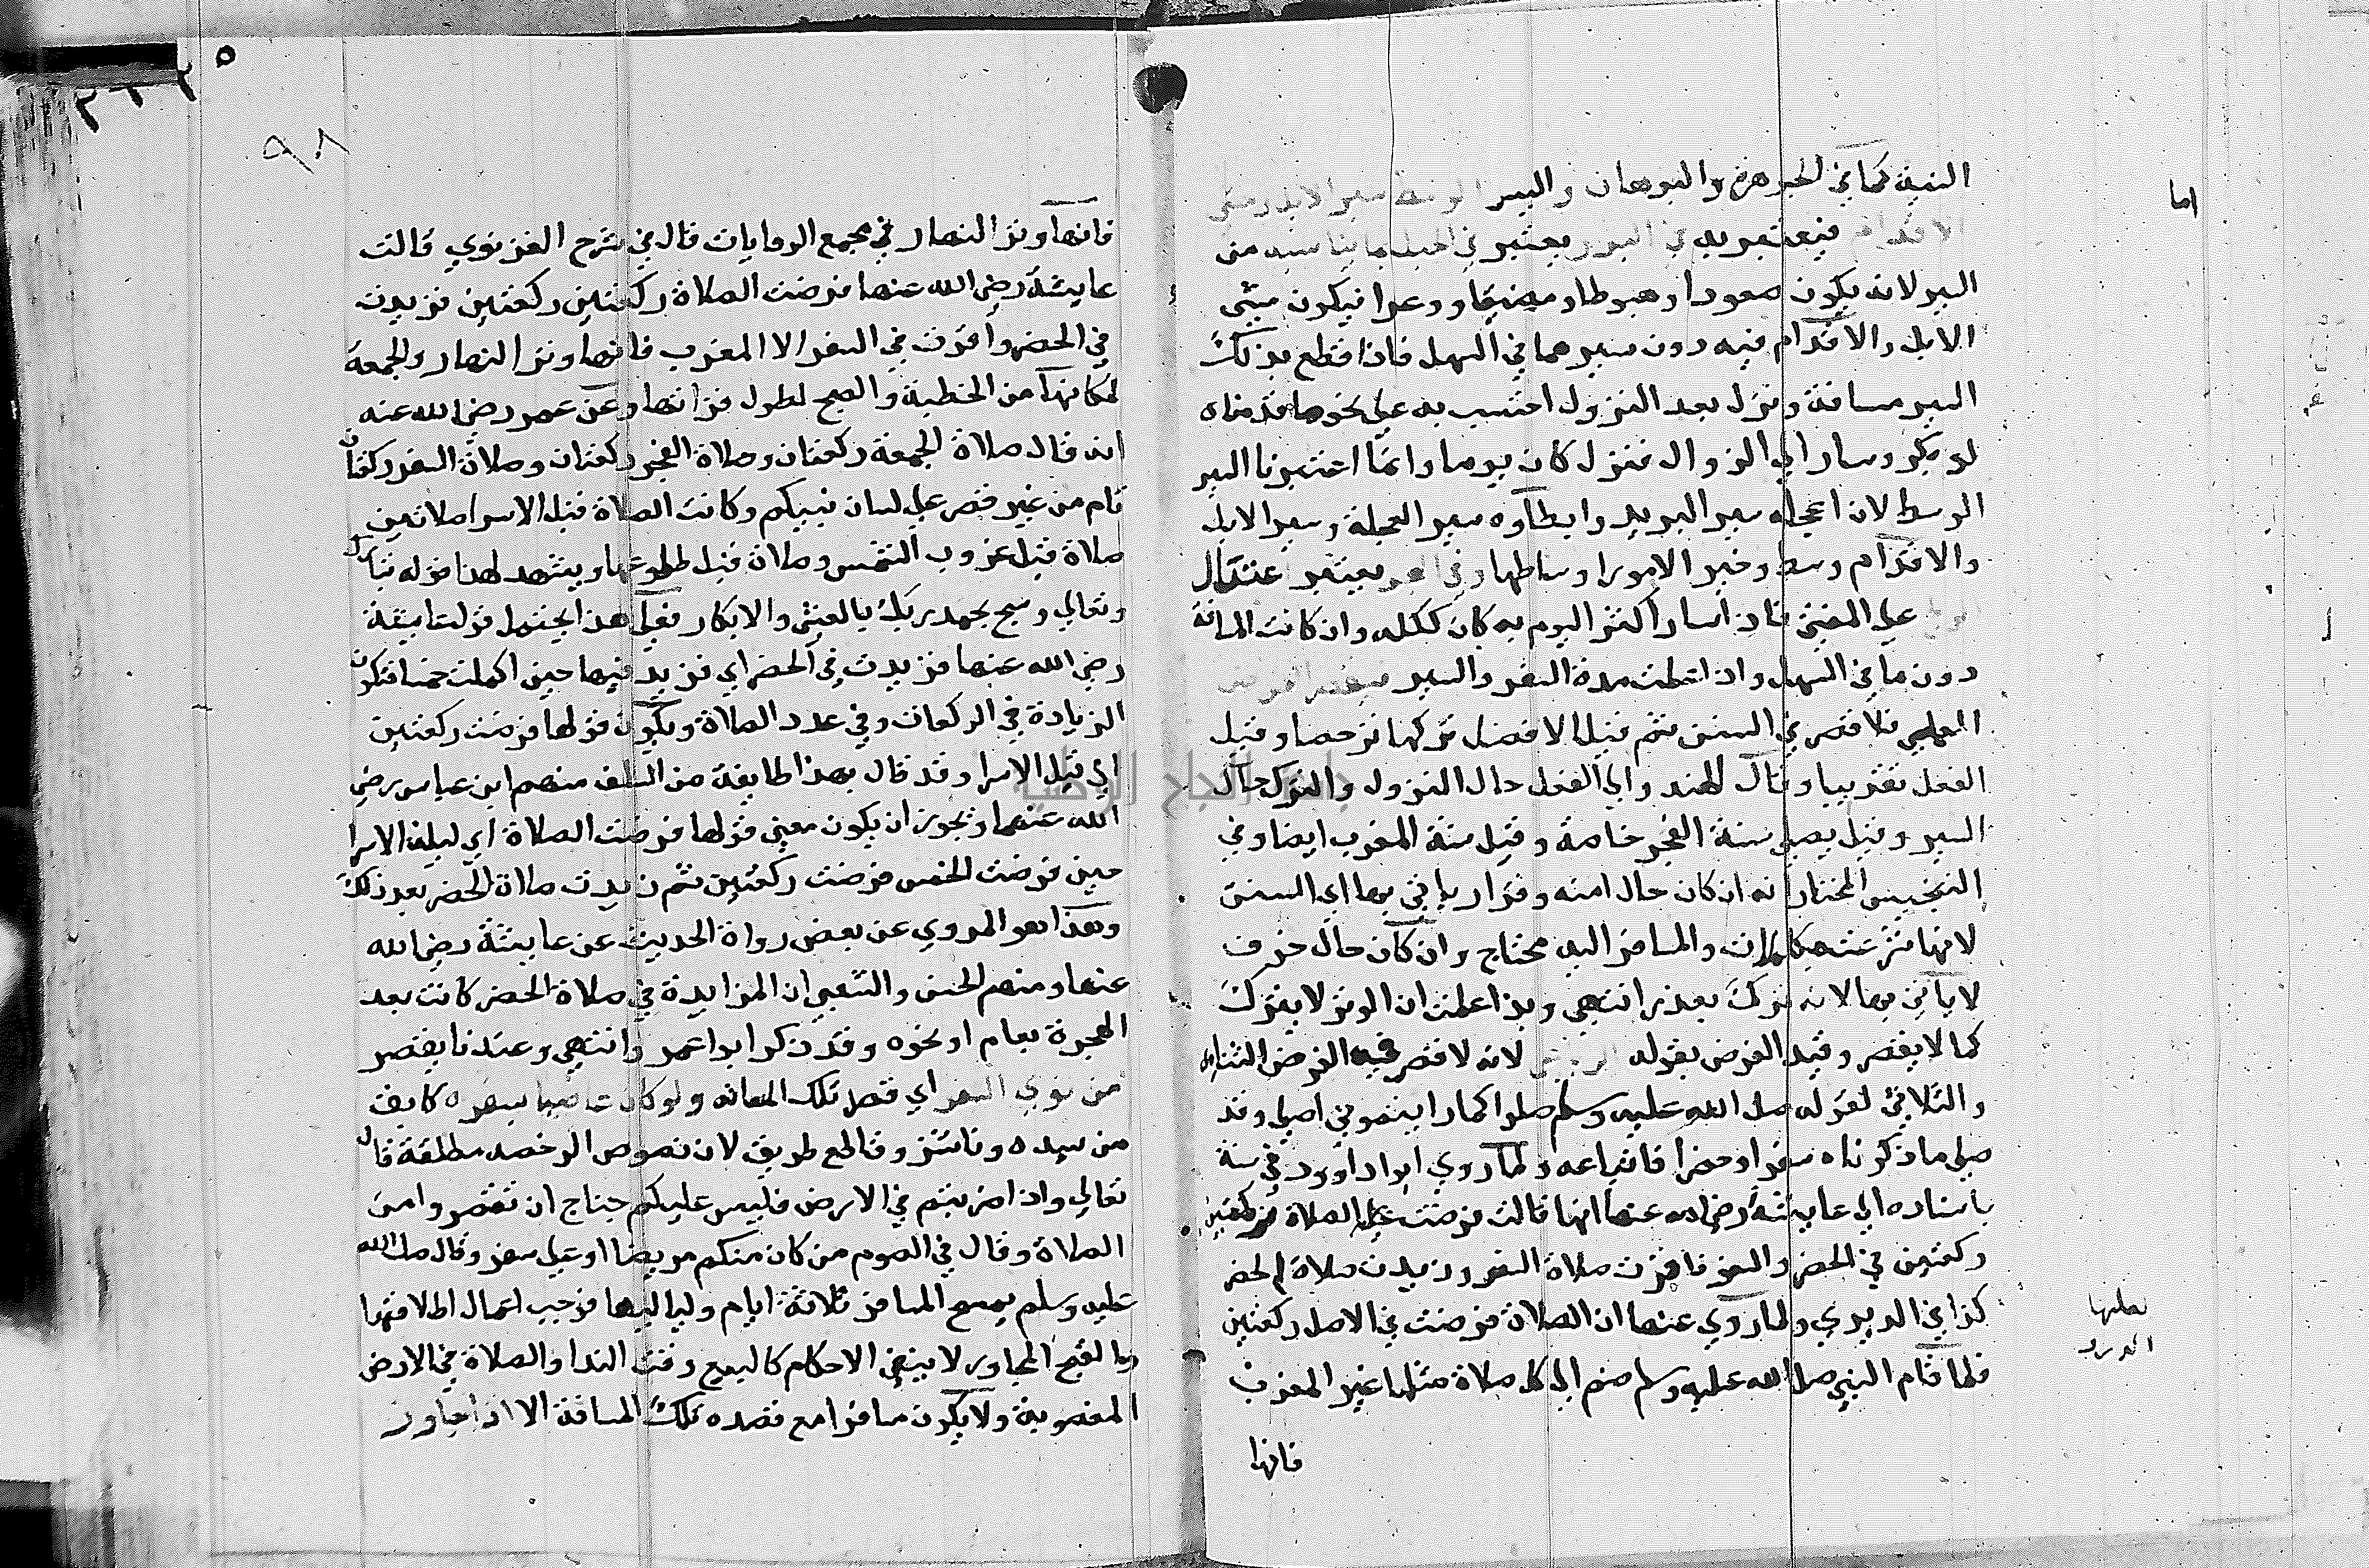 اما
النية كما في الجوهرة والبرهان والسير الوسط سير الابل ومشي
الاقدام فيعتبر به في البر ويعتبر في الجبل ما يناسبه من
السير لانه يكون صعودا وهبوطا ومضيقا ووعرا فيكون مشي
الابل والاقدام فيه دون سيرهما في السهل فاذا قطع بذلك
السير مسافة ونزل بعد النزول احتسب به على نحو ما قدمناه
لو بكر وسار الى الزوال فنزل كان يوما وانما اعتبرنا السير
الوسط لان اعجله سير البريد وابطاوه سير العجلة وسير الابل
والاقدام وسط وخير الامور اوساطها وفي البحر يعتبر اعتدال
الريح على المفتي فاذا سار اكثر اليوم به كان ككله وان كانت المسافة
دون ما في السهل واذا علمت مدة السفر والسير فيقصر الفرض
العملي فلا قصر في السنن ثم قيل الافضل تركها ترخصا وقيل
الفعل تقريبا وقال الهندواني الفعل حال النزول والترك حال
السير وقيل يصلي سنة الفجر خاصة وقيل سنة المغرب ايضا وفي
التجنيس المختار انه ان كان حال امنه وقرار ياتي بها اي السنن
لانها شرعت مكملات والمسافر اليه محتاج وان كان حال خوف
لا ياتي بها لانه ترك بعذر انتهى وبذا علمت ان الوتر لا يترك
كما لا يقصر وقيد الفرض بقوله الرباعي لانه لا قصر فيه الفرض الثنائي
والثلاثي لقوله صلى الله عليه وسلم صلوا كما رايتموني اصلي وقد
صلى ما ذكرناه سفرا وحضرا فاتباعه ولما روي ابو داوود في سننه
باسناده الى عايشة رضي الله عنها انها قالت فرضت الصلاة ركعتين
ركعتين في الحضر والسفر فاقرت صلاة السفر وزيدت صلاة الحضر
كذا في الديري ولما روي عنها ان الصلاة فرضت في الاصل ركعتين
فلما قدم النبي صلى الله عليه وسلم ضم الى كل صلاة مثلها غير المغرب
فانها
٩٨
فانها وتر النهار في مجمع الروايات قال في شرح الغزنوي قالت
عايشة رضي الله عنها فرضت الصلاة ركعتين ركعتين فزيدت
في الحضر واقرت في السفر الا المغرب فانها وتر النهار والجمعة
لمكانها من الخطبة والصبح لطول قرانها وعن عمر رضي الله عنه
انه قال صلاة الجمعة ركعتان وصلاة الفجر ركعتان وصلاة السفر ركعتان
تام من غير قصر على لسان نبيكم وكانت الصلاة قبل الاسرا صلاتين
صلاة قبل غروب الشمس وصلاة قبل طلوعها ويشهد لهذا قوله تبارك
وتعالى وسبح بحمد ربك بالعشي والابكار فعلى هذا يحتمل قول عايشة
رضي الله عنها فزيدت في الحضر اي فزيد فيها حين اكملت خمسا فتكون
الزيادة في الركعات وفي عدد الصلاة ويكون قولها فرضت ركعتين
اي قبل الاسرا وقد قال بهذا طايفة من السلف منهم ابن عباس رضي
الله عنهما ويجوز ان يكون معنى قولها فرضت الصلاة اي ليلة الاسرا
حين فرضت الخمس فرضت ركعتين ثم زيدت صلاة الحضر بعد ذلك
وهذا هو المروي عن بعض رواة الحديث عن عايشة رضي الله
عنها ومنهم الحسن والشعبي ان المزايدة في صلاة الحضر كانت بعد
الهجرة بعام او نحوه وقد ذكر ابو عمر وانتهى وعندنا يقصر
من نوى السفر اي قصد تلك المسافة ولو كان عاصيا بسفره كابق
من سيده وناشز وقاطع طريق لان نصوص الرخصة مطلقة قال
تعالى واذا ضربتم في الارض فليس عليكم جناح ان تقصروا من
الصلاة وقال في الصوم من كان منكم مريضا او على سفر وقال صلى الله
عليه وسلم يمسح المسافر ثلاثة ايام ولياليها فوجب اعمال اطلاقها
والقبح المجاور لا ينفي الاحكام كالبيع وقت الندا والصلاة في الارض
المغصوبة ولا يكون مسافرا مع قصده تلك المسافة الا اذا جاوز
جامعة النجاح الوطنية